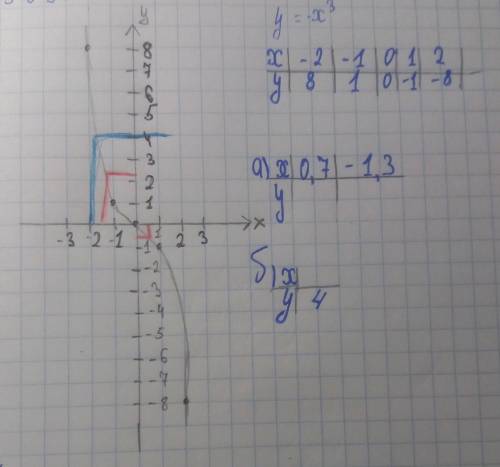 y
y = -x³
x -2 -1 0 1 2
y 8 1 0 -1 -8
8
7
6
5
4
3
2
1
а) x 0,7 -1,3
y
-3 -2 -1 1 2 3 x
-1
-2
-3
-4
-5
-6
-7
-8
б) x
y 4